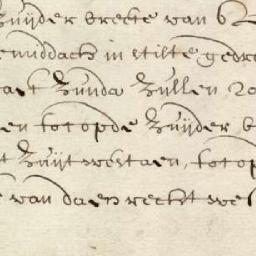 Zuijder breete van 62
emiddach in stilte gedre
aat Zunda Zullen 20
en tot op de Zuijder b
t Zuijt westaen, tot op
van daen recht wes